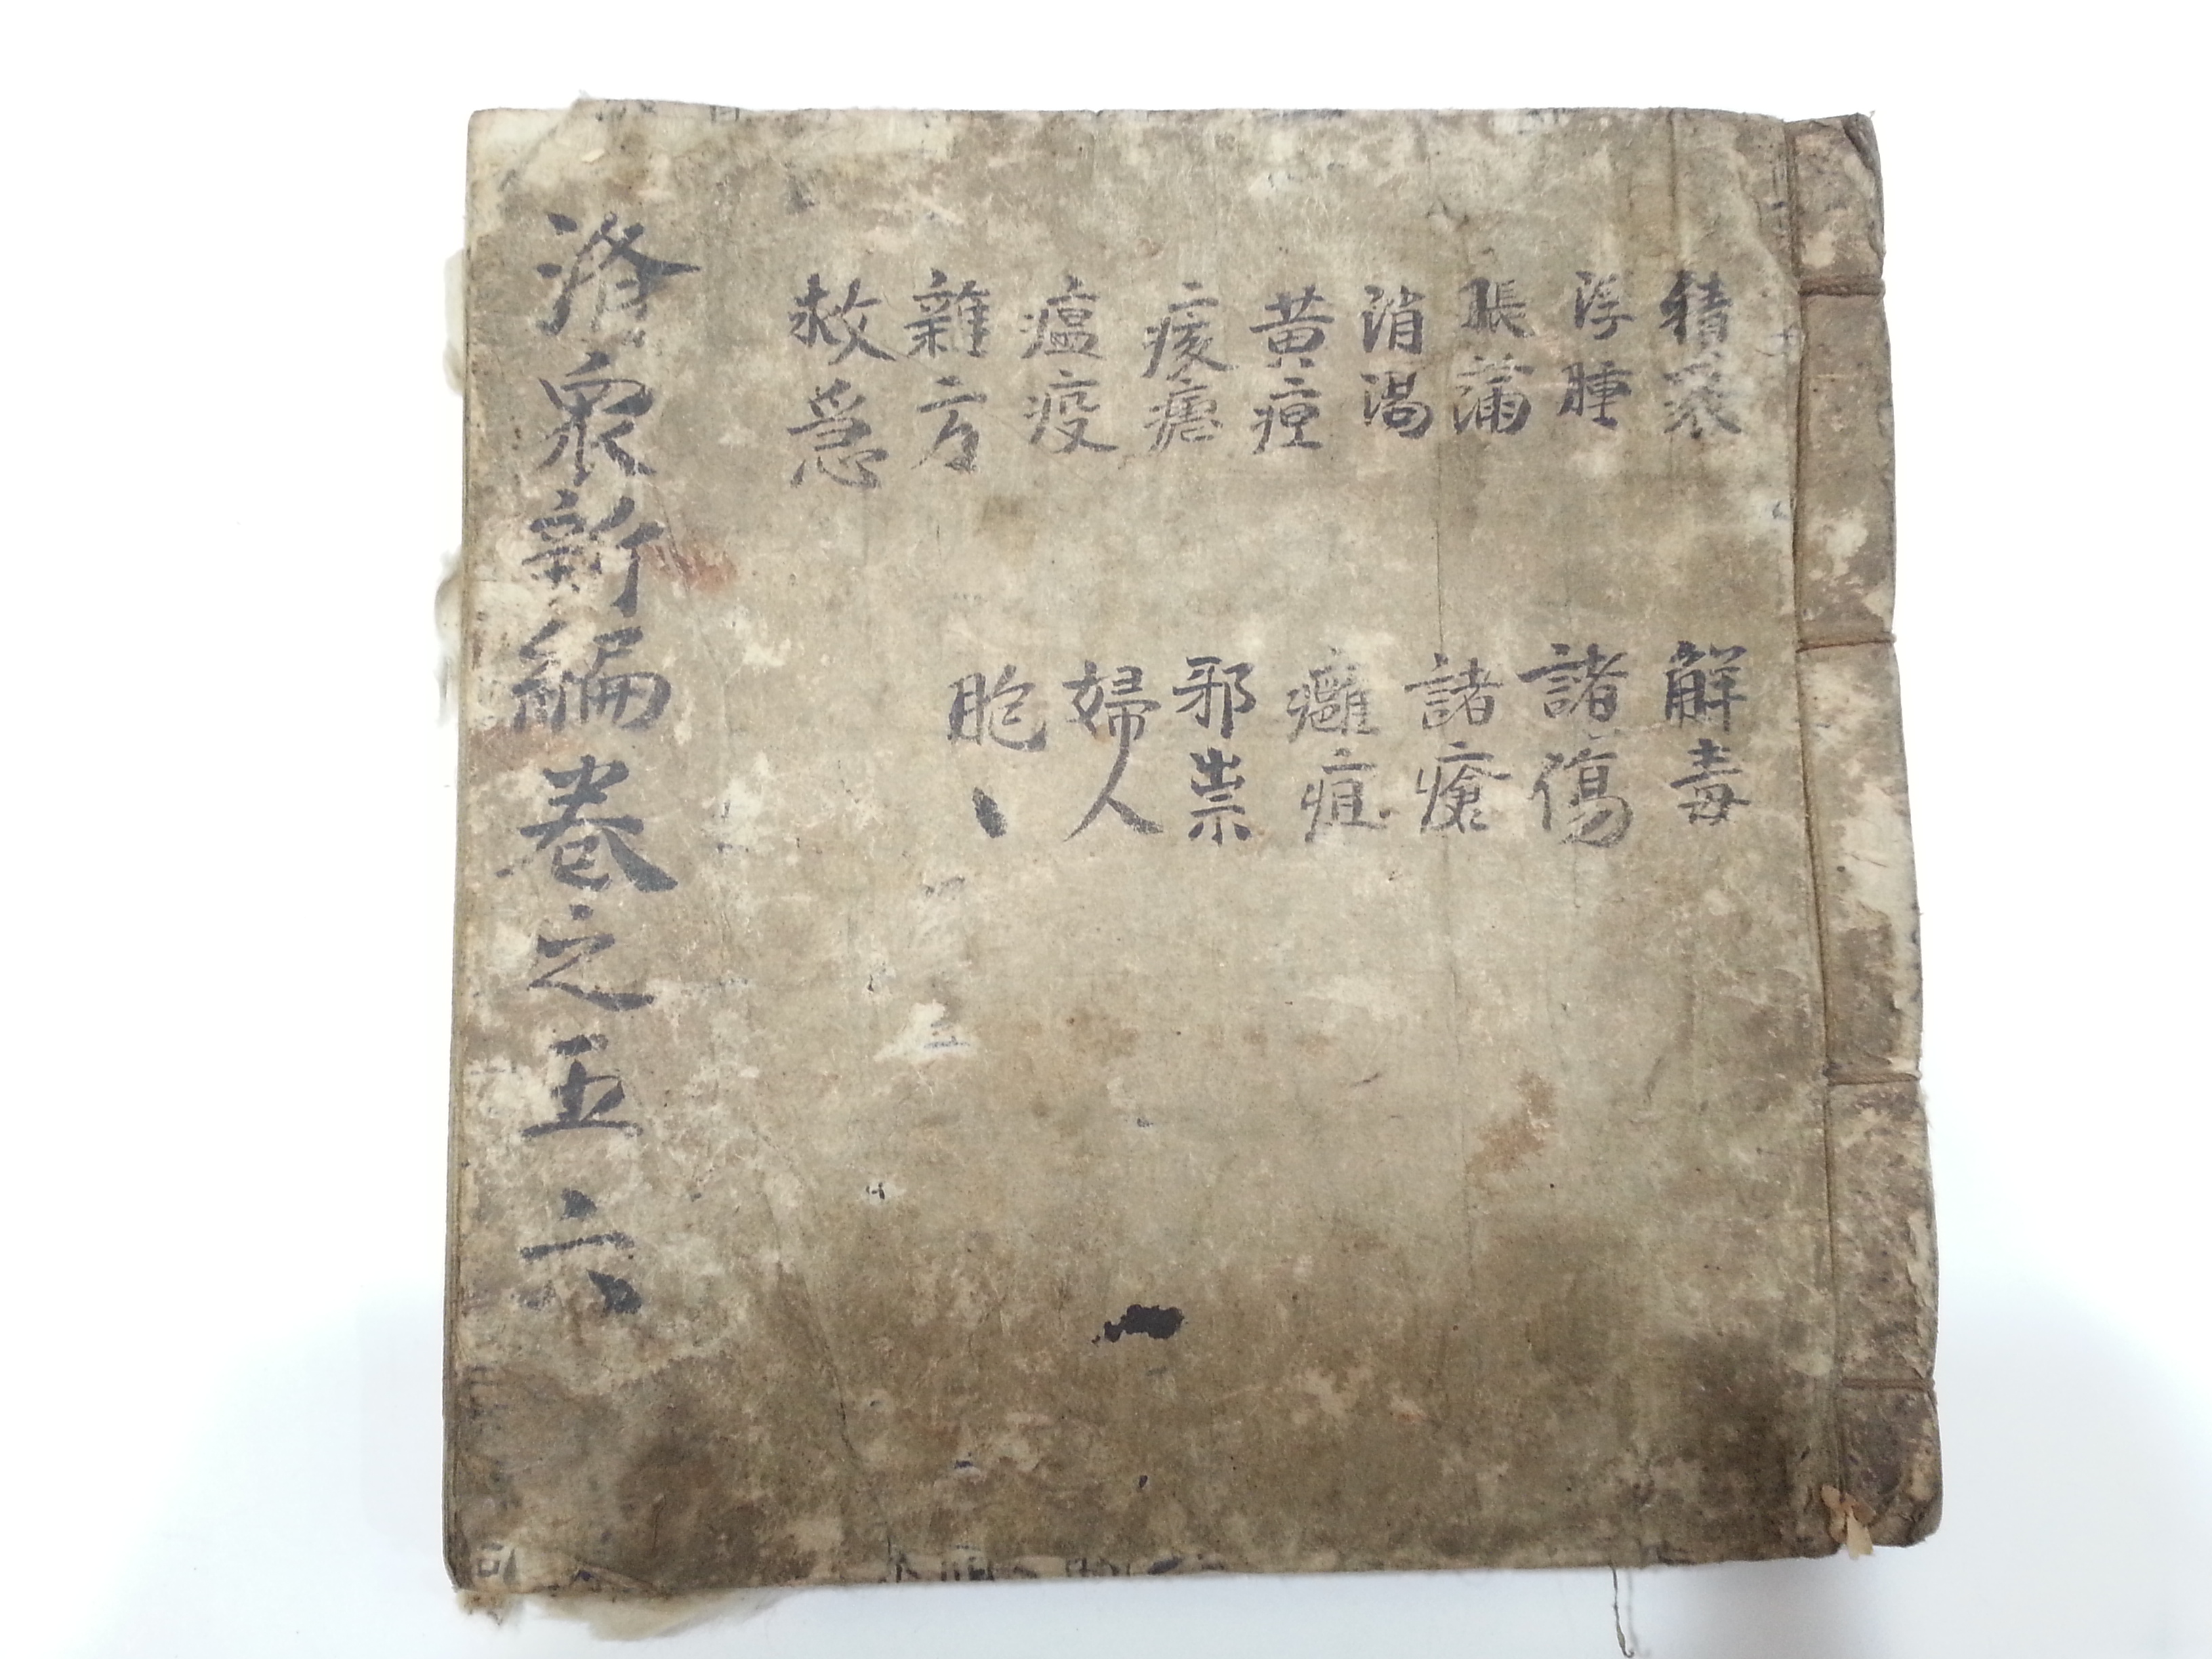 積聚
浮腫
脹滿
消渴
黃疸
痎瘧
瘟疫
雜方
救急
解毒
諸傷
諸瘡
癰疽
邪祟
婦人
胞丶
濟衆新編卷之五六